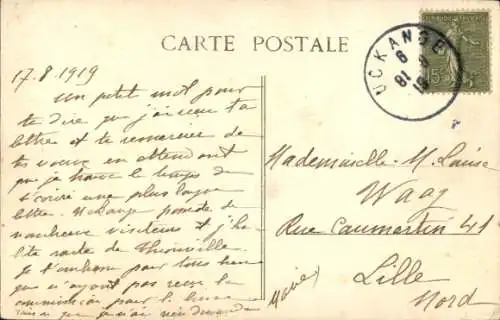 CARTE POSTALE
UCKANGE
15
17.8.1919
Un petit mot pour
te dire que j'ai reçu ta
lettre et te remercier de
tes voeux en attendant
que je trouve le temps de
t'écrire une plus longue
lettre. Uckange possède de
nombreux visiteurs et j'ha-
bite route de Thionville.
Je t'embrasse pour tous
que n'ayant pas reçu la
commission pour l
que je n'ai
Mademoiselle M. Louise
Waag
Rue Caumartin 41
Lille
Nord